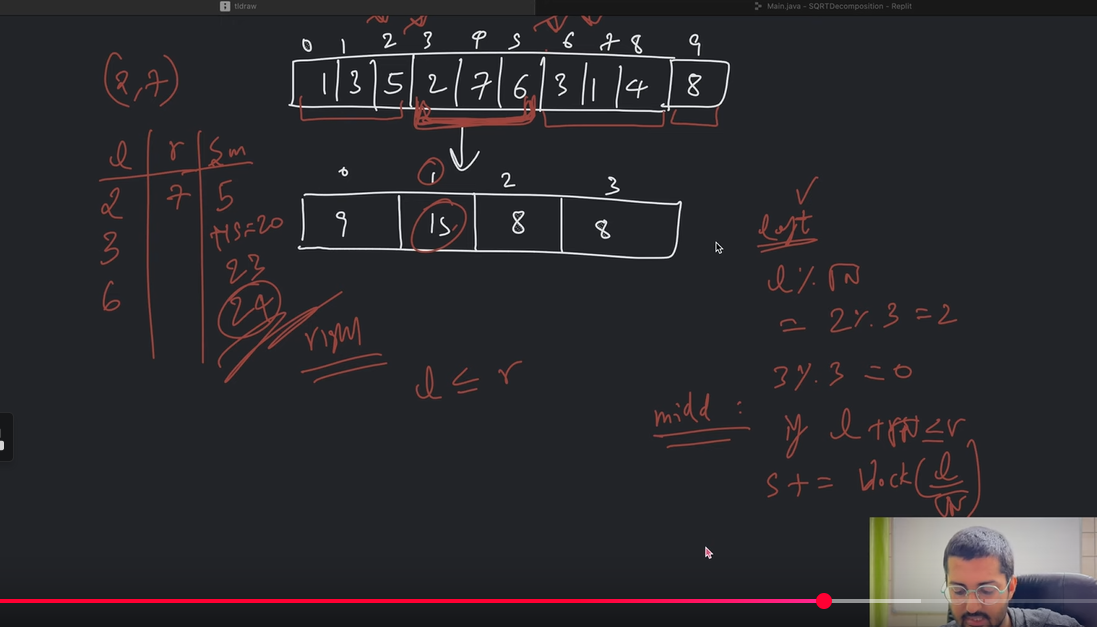 tldraw
Main.java - SQRTDecomposition - Replit
0 1 2 3 4 5 6 7 8 9
1 3 5 2 7 6 3 1 4 8
(2,7)
l r Sum
2 7 5
+15=20
3
23
6
24
0 1 2 3
9 15 8 8
right
l ≤ r
left
l % √N
= 2 % 3 = 2
3 % 3 = 0
midd :
if l + √N ≤ r
s + = block(l/√N)